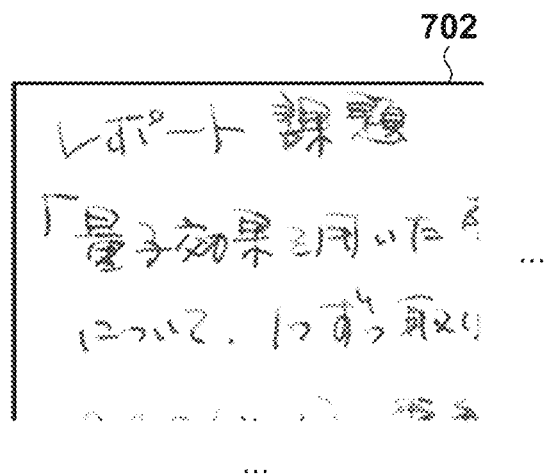 702
レポート 課題
「量子効果を用いた
...
について、1つずつ取り
...